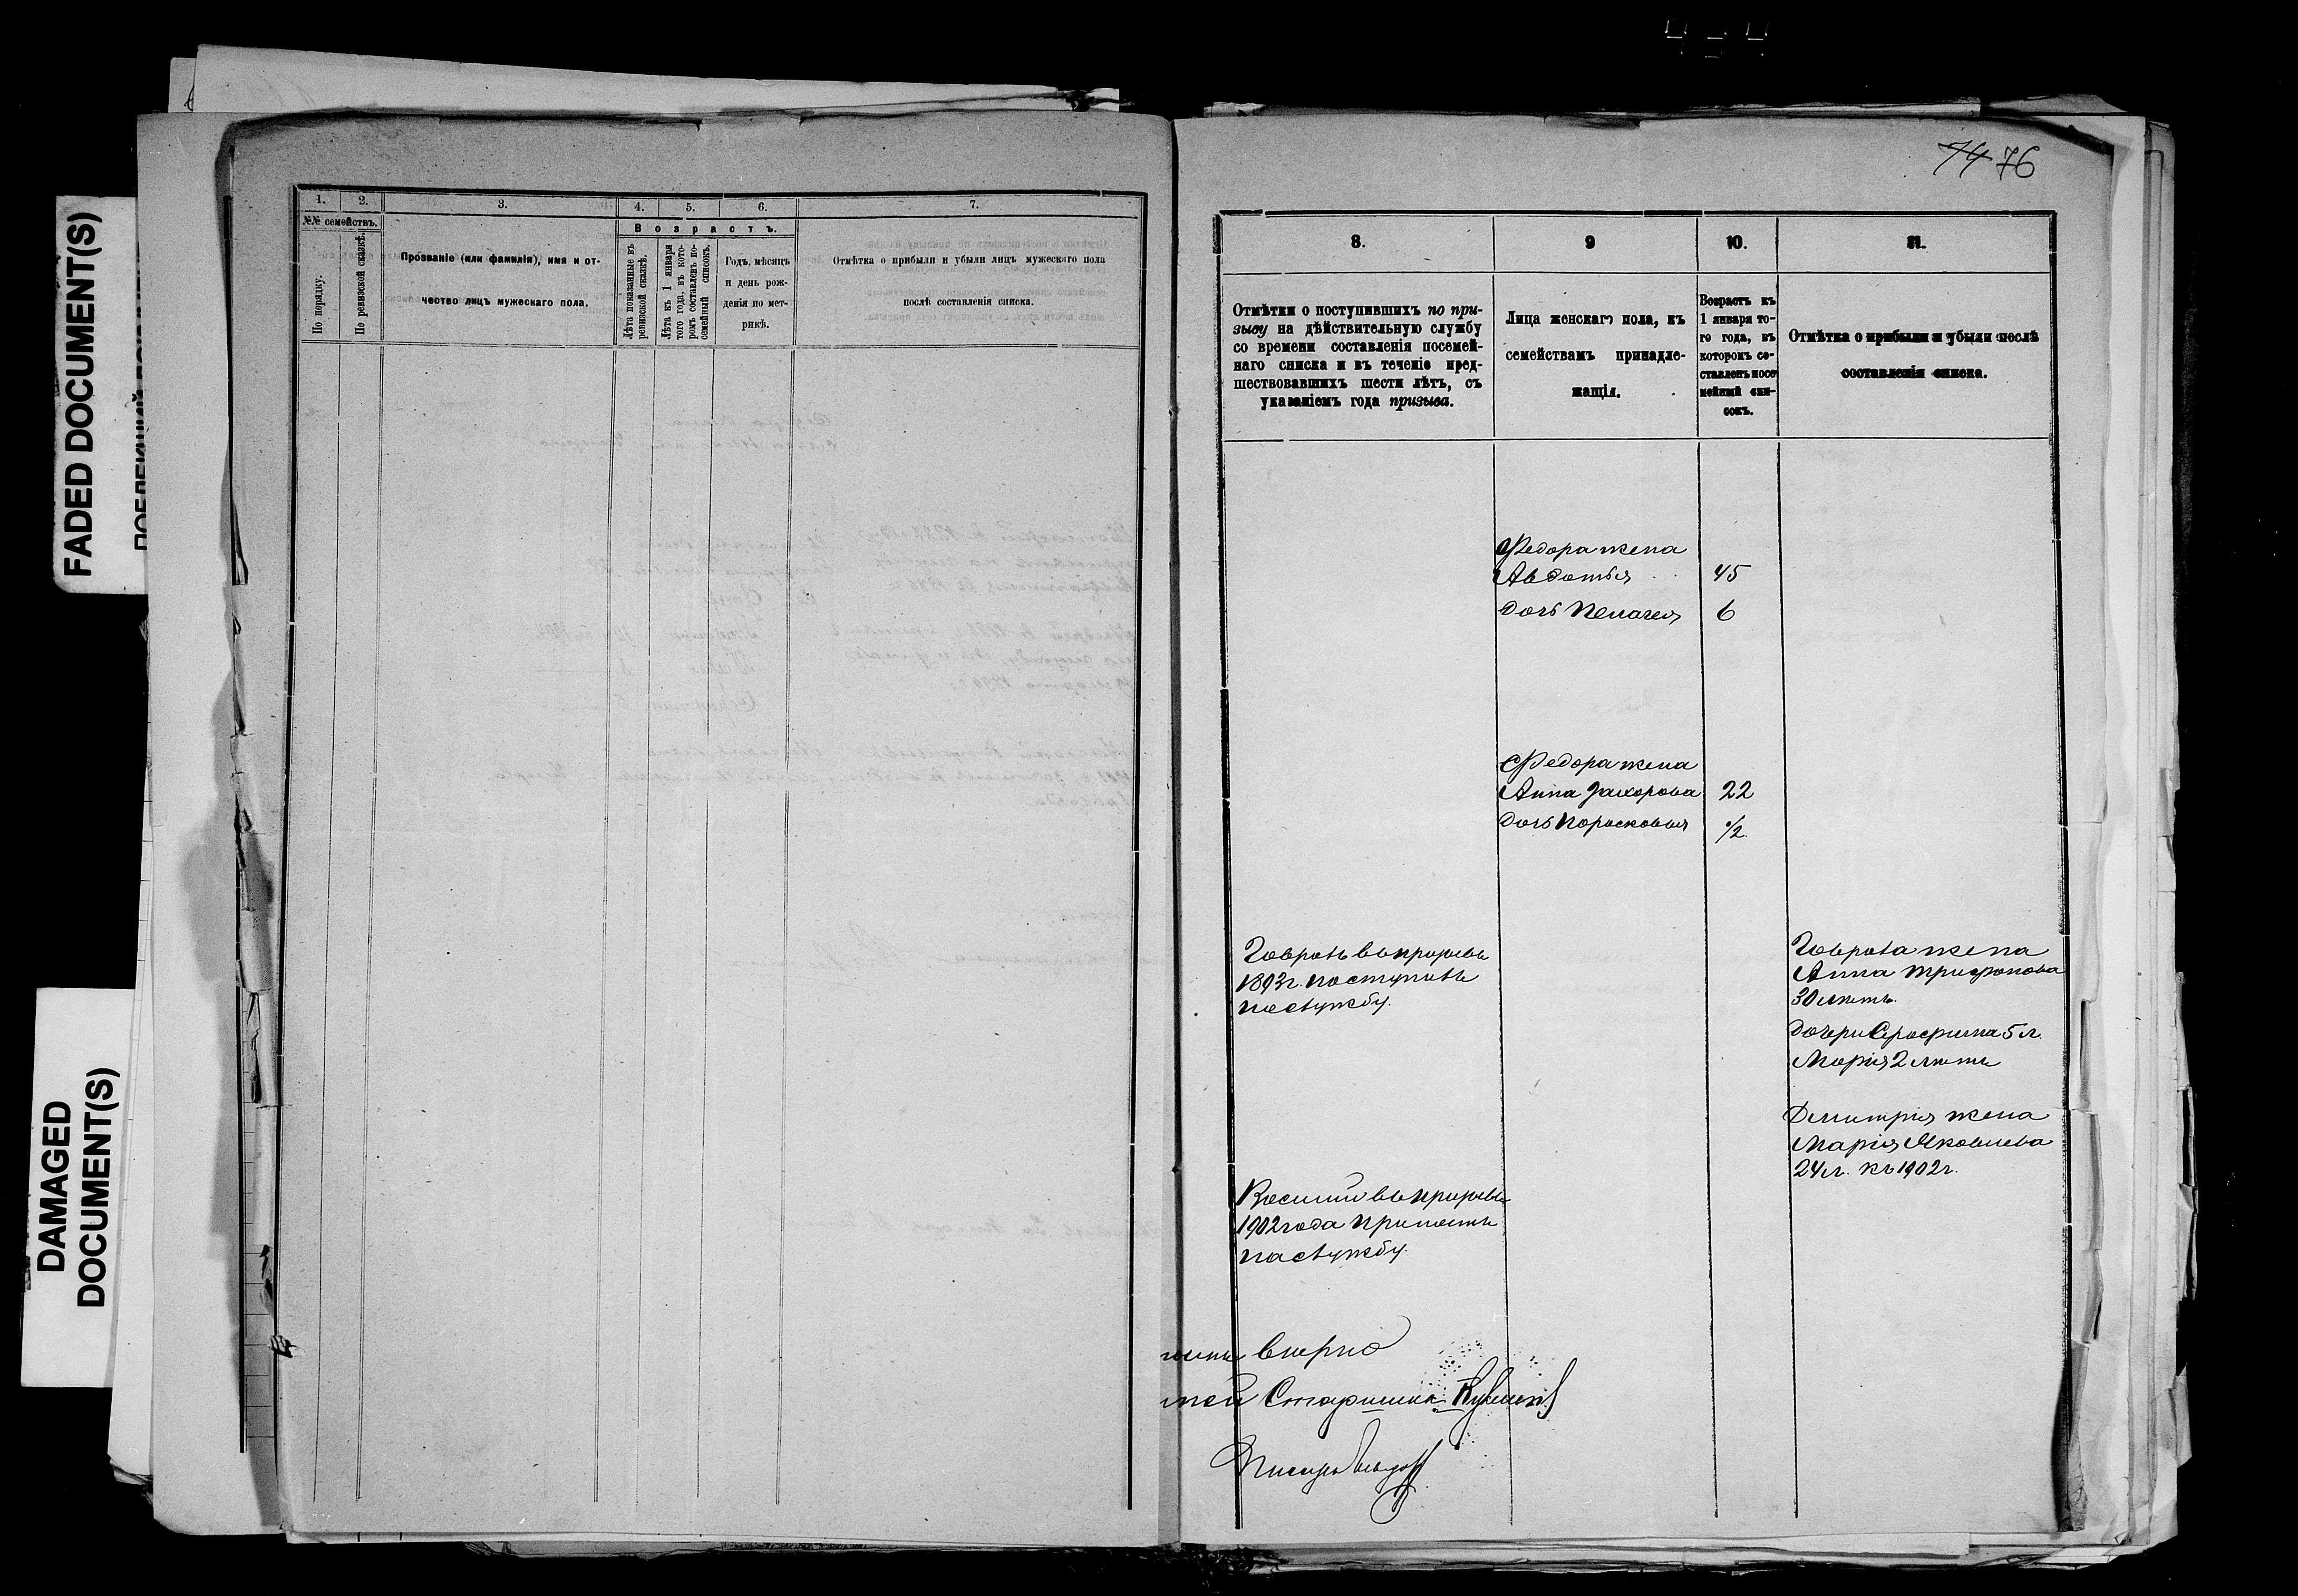 FADED DOCUMENT(S)
DAMAGED
DOCUMENT(S)
1.
2.
3.
4.
5.
6.
7.
№№ семействъ.
По порядку.
По ревизской сказкѣ.
Прозваніе (или фамилія), имя и от-
чество лицъ мужескаго пола.
Возрастъ.
Лѣта показанные въ
ревизской сказкѣ.
Лѣта къ 1 января
того года, въ кото-
ромъ составленъ по-
семейный списокъ.
Годъ, мѣсяцъ
и день рож-
денія по мет-
рикѣ.
Отмѣтка о прибыли и убыли лицъ мужескаго пола
послѣ составленія списка.
74 76
8.
9
10.
11.
Отмѣтки о поступившихъ по при-
зыву на дѣйствительную службу
со времени составленія посемей-
наго списка и въ теченіе пред-
шествовавшихъ шести лѣтъ, съ
указаніемъ года призыва.
Лица женскаго пола, къ
семействамъ принадле-
жащія.
Возрастъ къ
1 января то-
го года, въ
которомъ со-
ставленъ посе
мейный спи-
сокъ.
Отмѣтка о прибыли и убыли послѣ
составленія списка.
Федора жена
Авдотья 45
дочь Пелагея 6
Федора жена
Анна Захорова 22
дочь Поросковья 1/2
Говровъ въ призывъ
1893г. поступивъ
на службу.
Говрова жена
Анна Трифонова
30 лѣтъ.
дочери Серофима 5 л.
Морія 2 лѣтъ
Дмитрія жена
Марія Яковлева
24 л. къ 1902 г.
Восилій въ призывъ
1902 года принятъ
на службу.
вѣрно
Старшина
Писарь